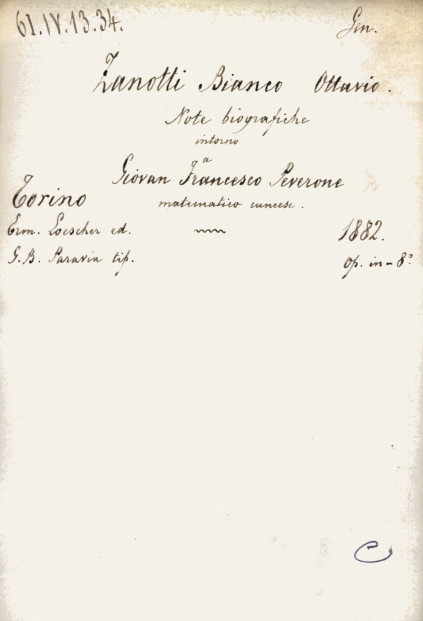 61.IV.13.34.
Gen.
Zanotti Bianco Ottavio.
Note biografiche
intorno
a
Giovan Francesco Peverone
matematico cuneese.
Torino
Erm. Loescher ed. 1882.
G. B. Paravia tip. op. in-8º
C